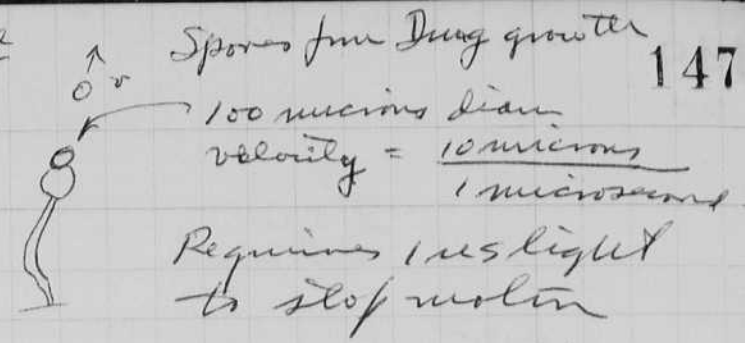 Spores from Dung growth
147
v
100 microns diam
velocity = 10 microns
1 microsecond
Requires 1 us light
to stop motion